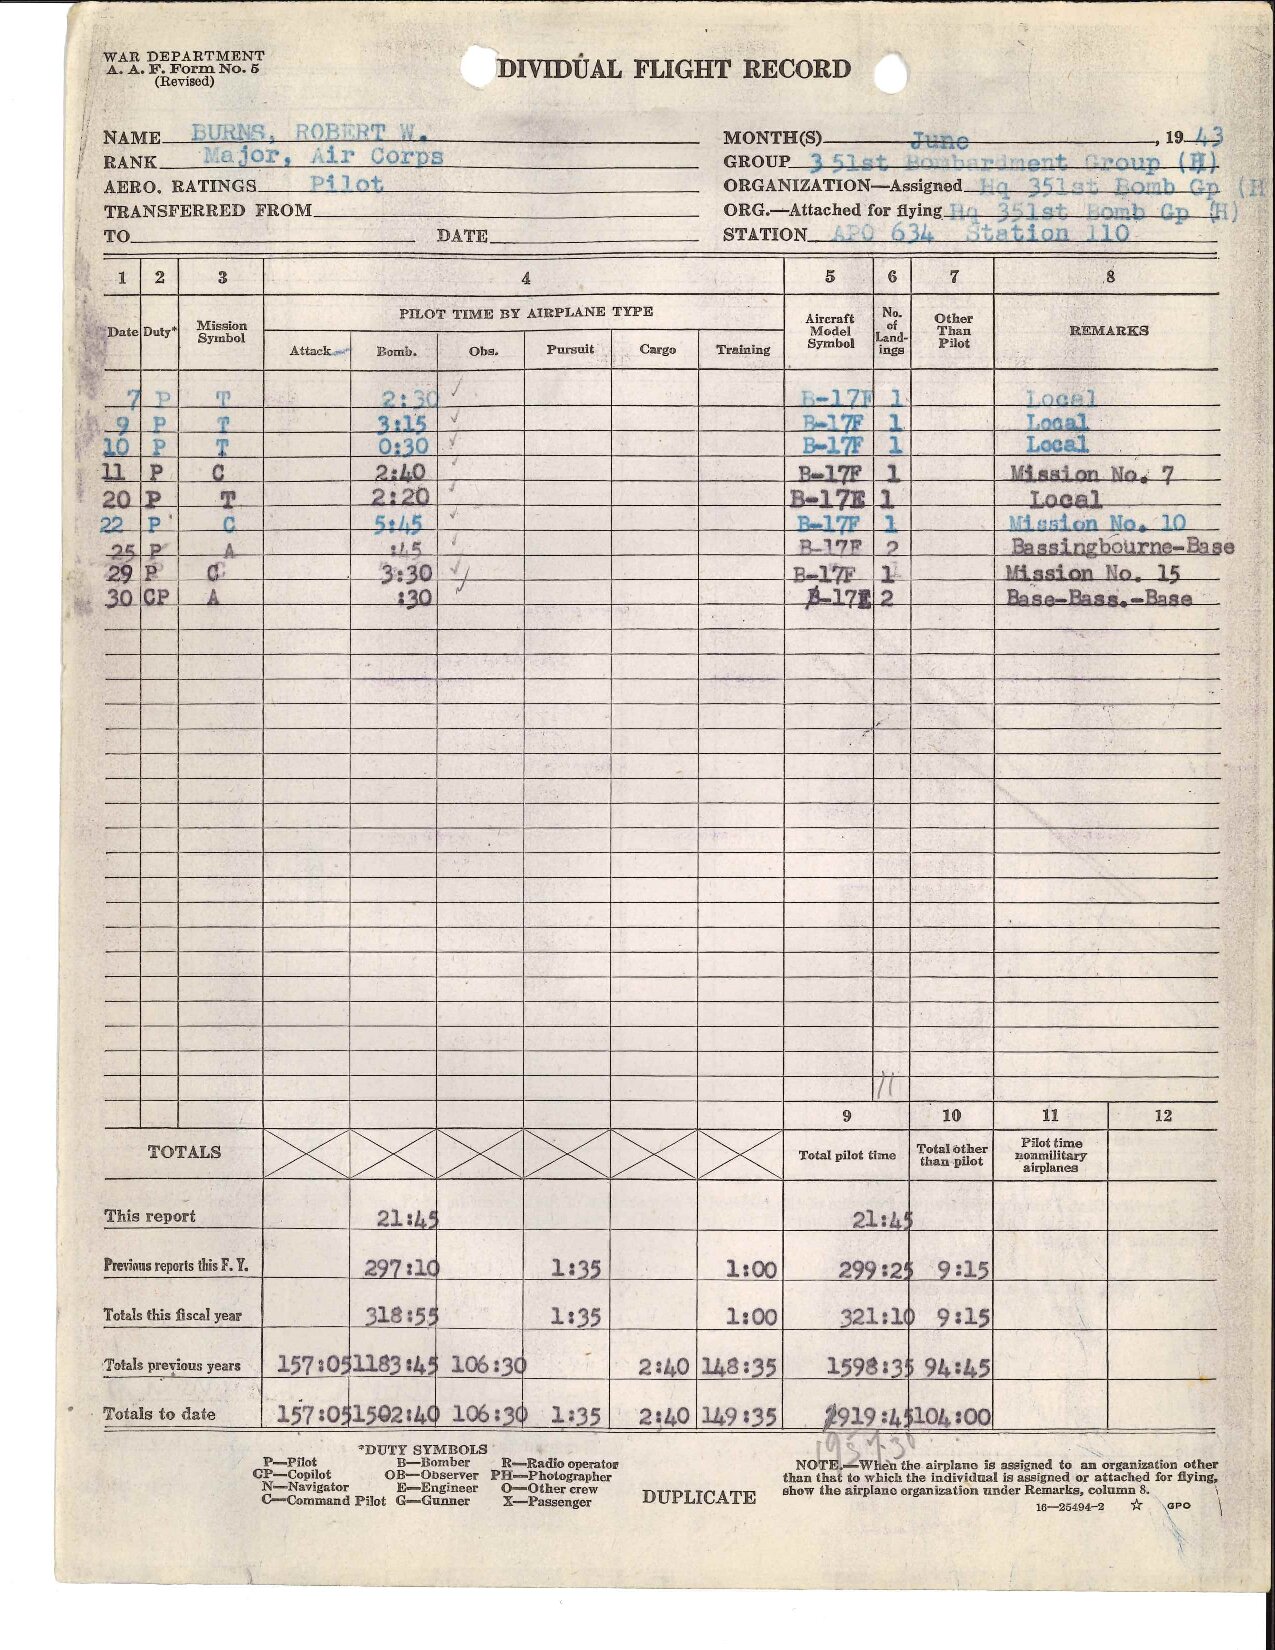 WAR DEPARTMENT
A. A. F. Form No. 5
(Revised)
DIVIDUAL FLIGHT RECORD
NAME BURNS, ROBERT W.
RANK Major, Air Corps
AERO. RATINGS Pilot
TRANSFERRED FROM
TO DATE
MONTH(S) June, 1943
GROUP 351st Bombardment Group (H)
ORGANIZATION—Assigned Hq 351st Bomb Gp (H
ORG.—Attached for flying Hq 351st Bomb Gp (H)
STATION APO 634 Station 110
1 2 3 4 5 6 7 8
Date Duty* Mission Symbol PILOT TIME BY AIRPLANE TYPE Aircraft Model Symbol No. of Landings Other Than Pilot REMARKS
Attack Bomb. Obs. Pursuit Cargo Training
7 P T 2:30 B-17F 1 Local
9 P T 3:15 B-17F 1 Local
10 P T 0:30 B-17F 1 Local
11 P C 2:40 B-17F 1 Mission No. 7
20 P T 2:20 B-17E 1 Local
22 P C 5:45 B-17F 1 Mission No. 10
25 P A :45 B-17F 2 Bassingbourne-Base
29 P C 3:30 B-17F 1 Mission No. 15
30 CP A :30 B-17E 2 Base-Bass.-Base
11
9 10 11 12
TOTALS Total pilot time Total other than pilot Pilot time nonmilitary airplanes
This report 21:45 21:45
Previous reports this F. Y. 297:10 1:35 1:00 299:25 9:15
Totals this fiscal year 318:55 1:35 1:00 321:10 9:15
Totals previous years 157:05 1183:45 106:30 2:40 148:35 1598:35 94:45
Totals to date 157:05 1502:40 106:30 1:35 2:40 149:35 1919:45 104:00
*DUTY SYMBOLS
P—Pilot B—Bomber R—Radio operator
CP—Copilot OB—Observer PH—Photographer
N—Navigator E—Engineer O—Other crew
C—Command Pilot G—Gunner X—Passenger
DUPLICATE
NOTE.—When the airplane is assigned to an organization other
than that to which the individual is assigned or attached for flying,
show the airplane organization under Remarks, column 8.
16—25494-2 ☆ GPO